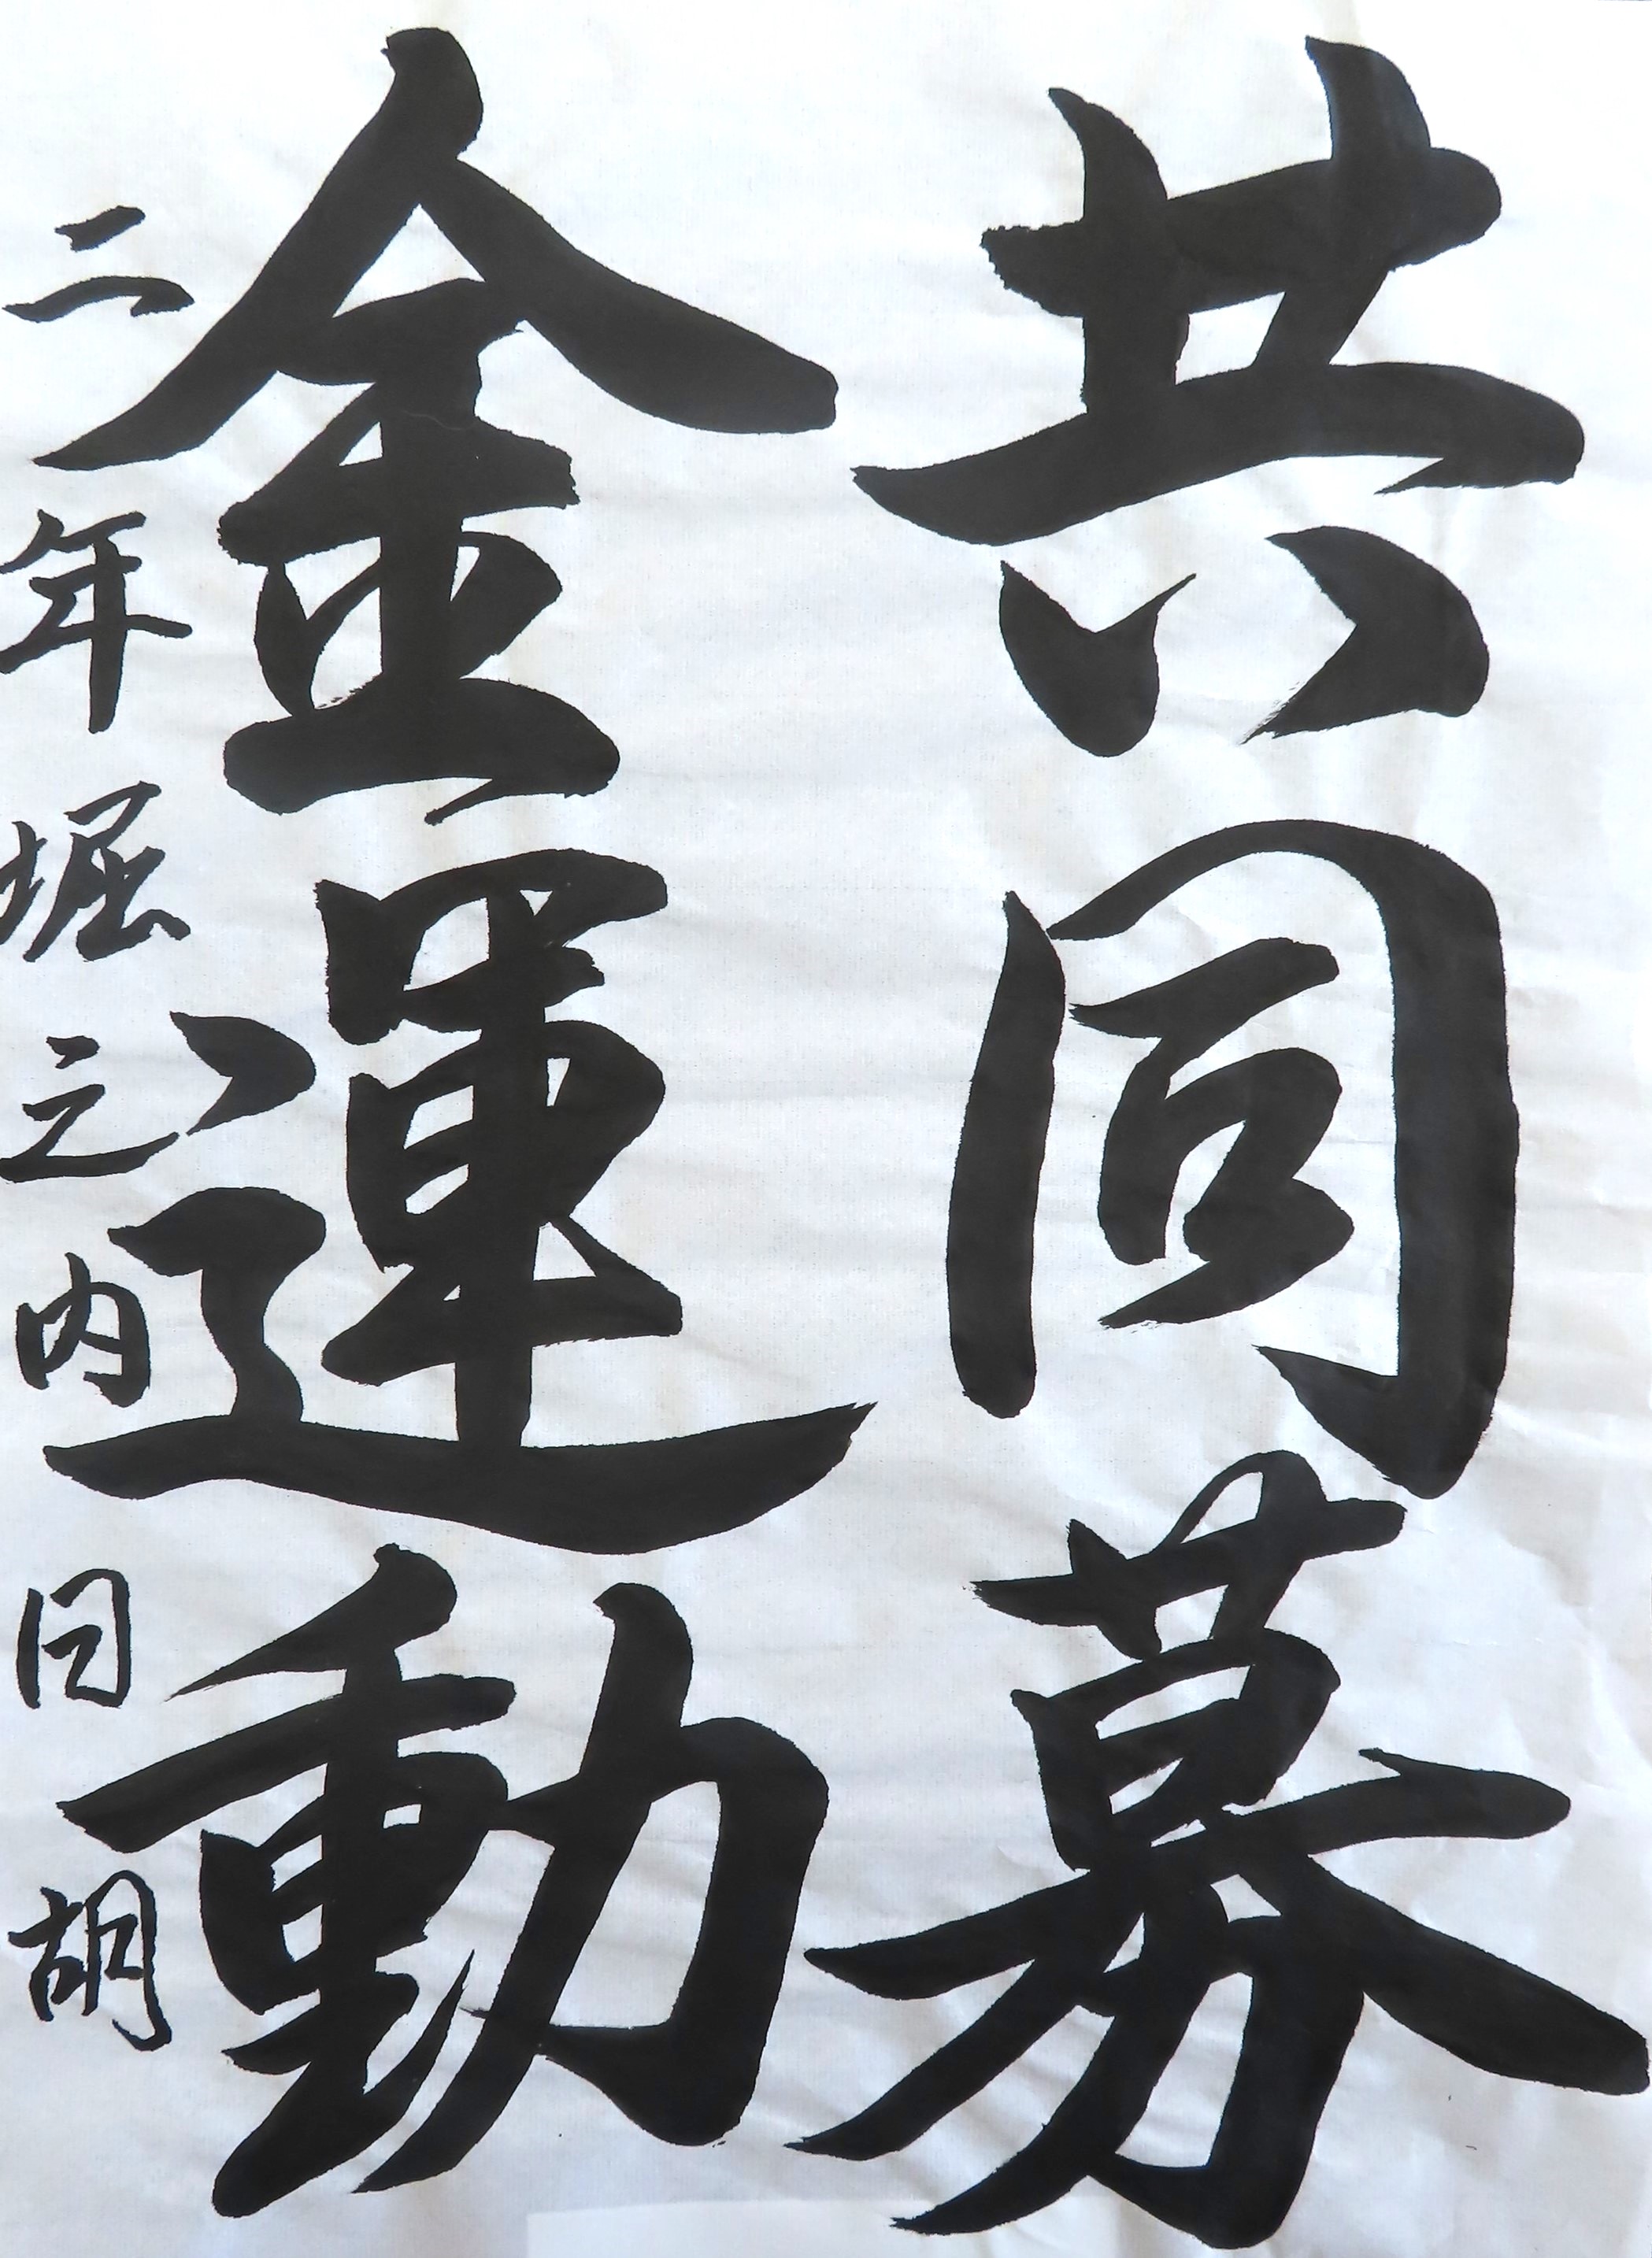 共同募
金運動
二年堀之内日胡